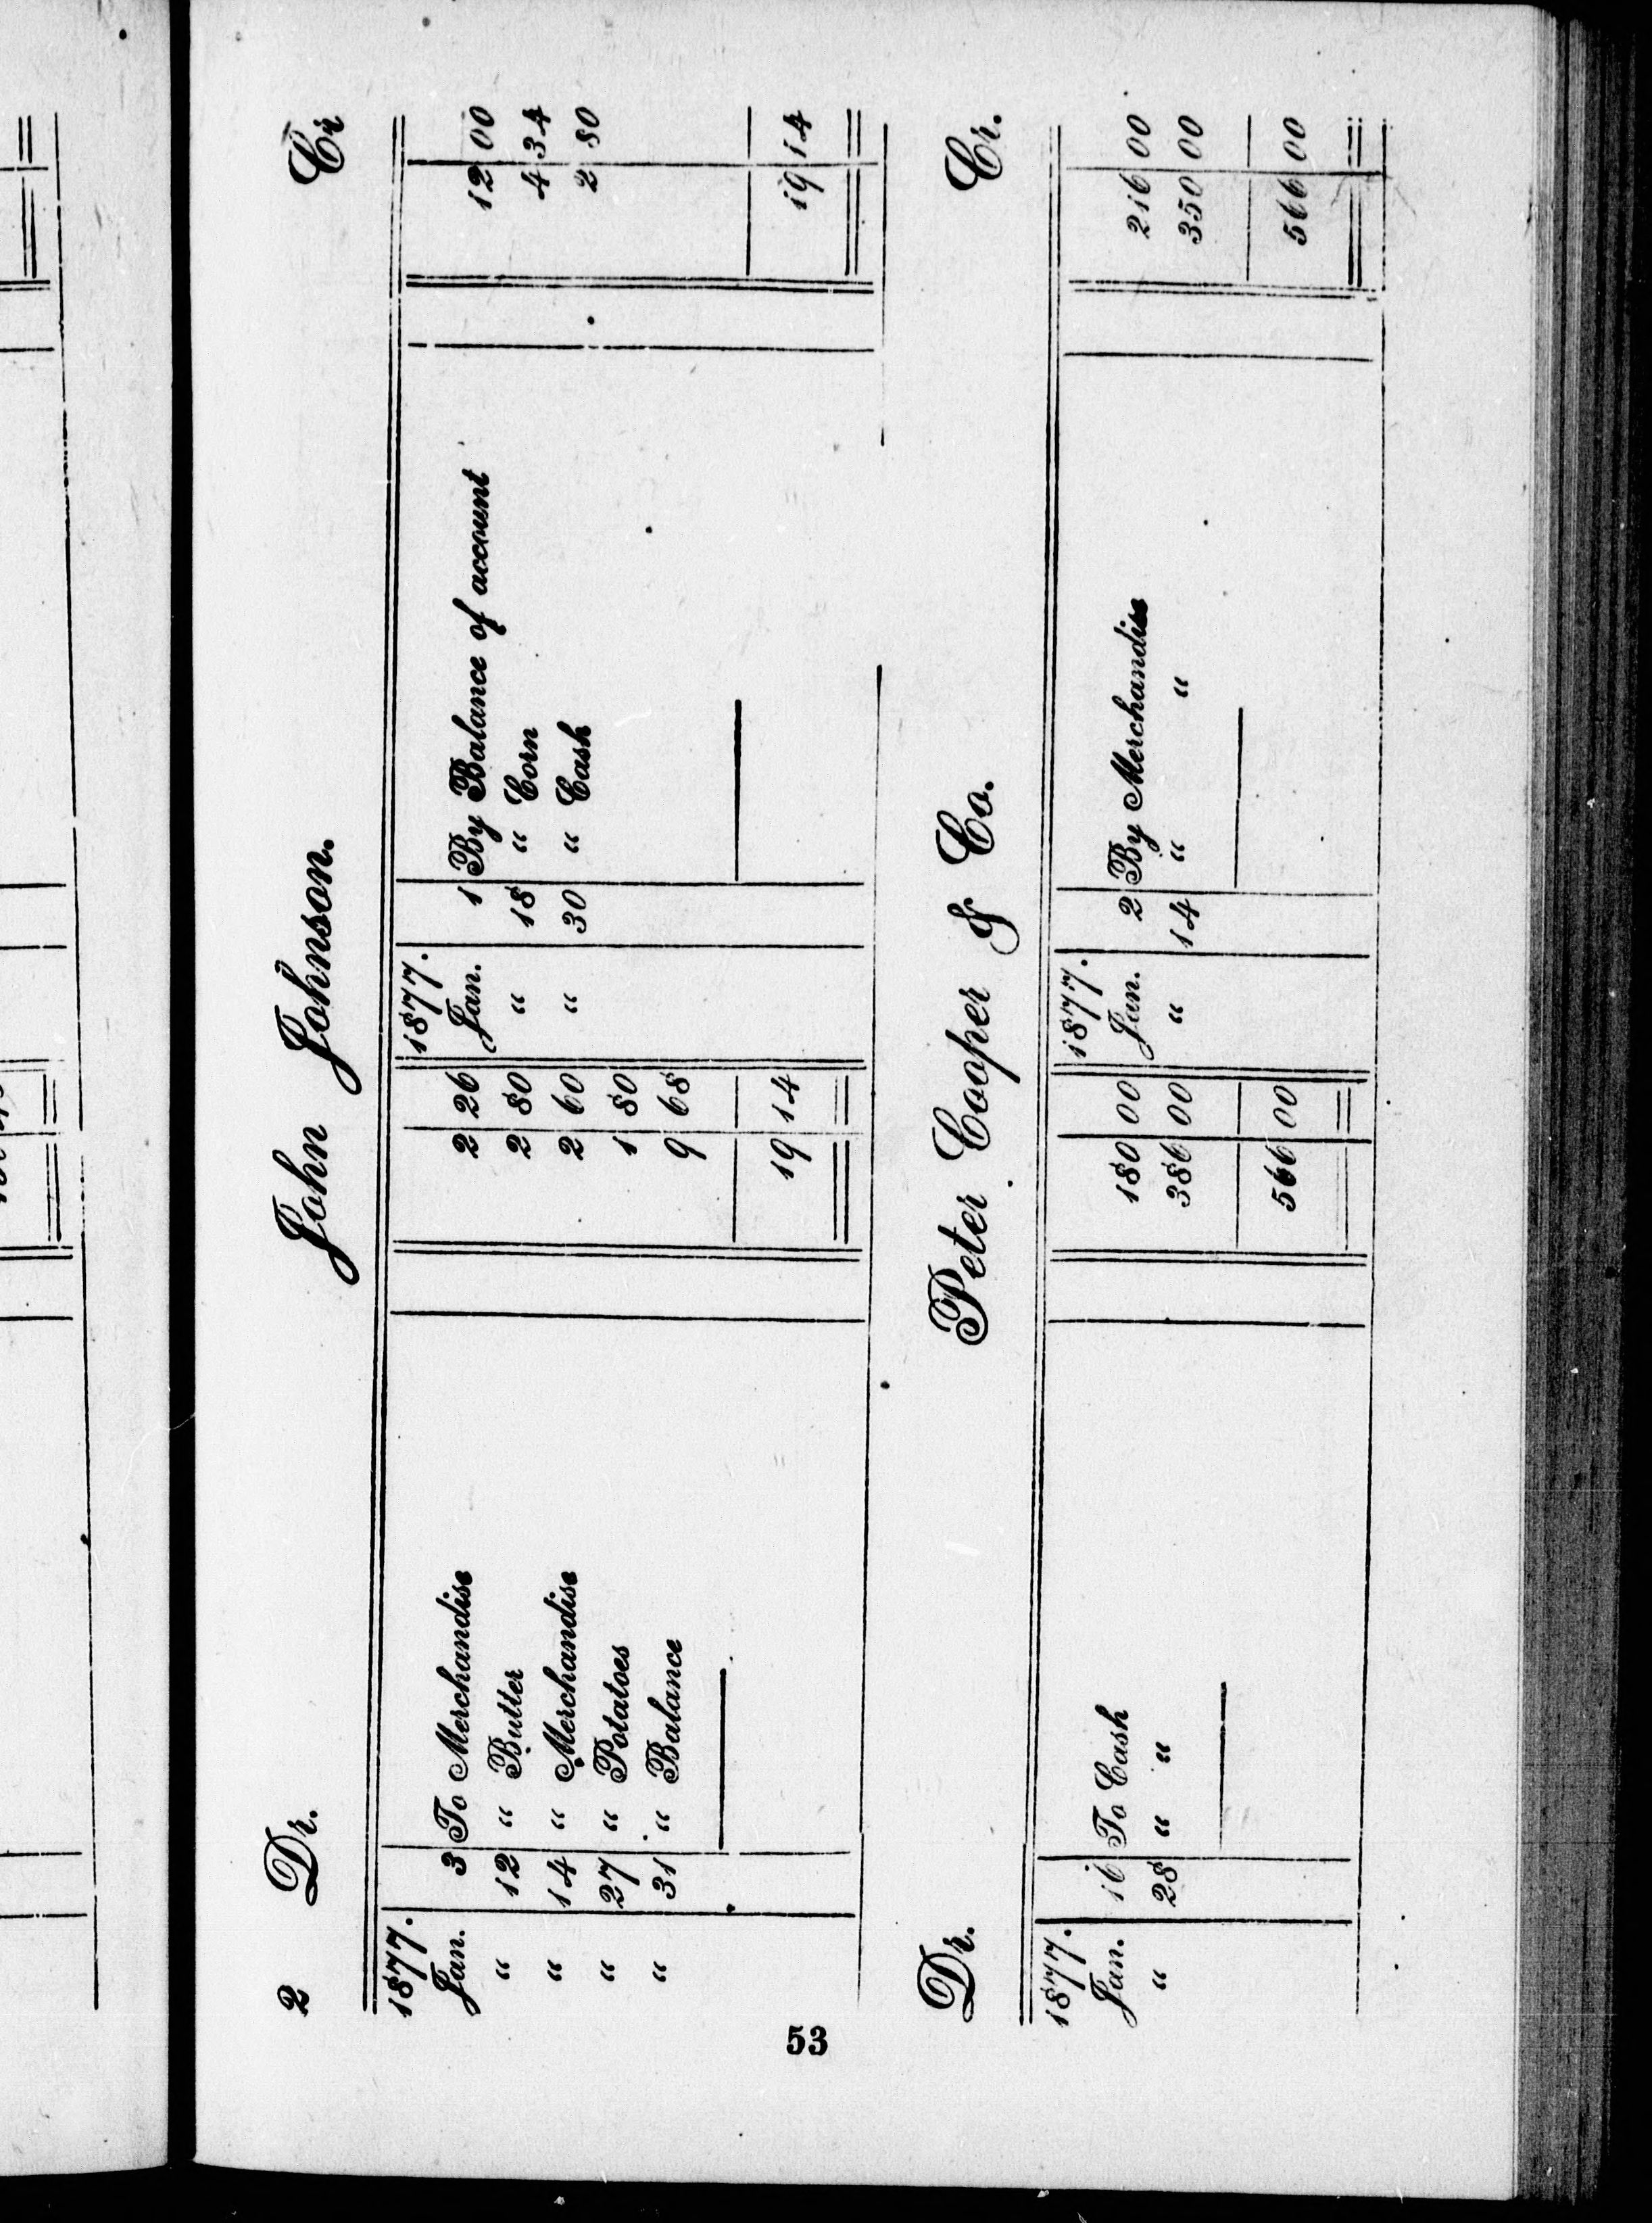 2 Dr. John Johnson. Cr
1877. 1877.
Jan. 3 To Merchandise 2 26 Jan. 1 By Balance of account 12 00
" 12 " Butter 2 80 " 18 " Corn 4 34
" 14 " Merchandise 2 60 " 30 " Cash 2 80
" 27 " Potatoes 1 80
" 31 " Balance 9 68
19 14 19 14
Dr. Peter Cooper & Co. Cr.
1877. 1877.
Jan. 16 To Cash 180 00 Jan. 2 By Merchandise 216 00
" 28 " " 386 00 " 14 " " 350 00
566 00 566 00
53